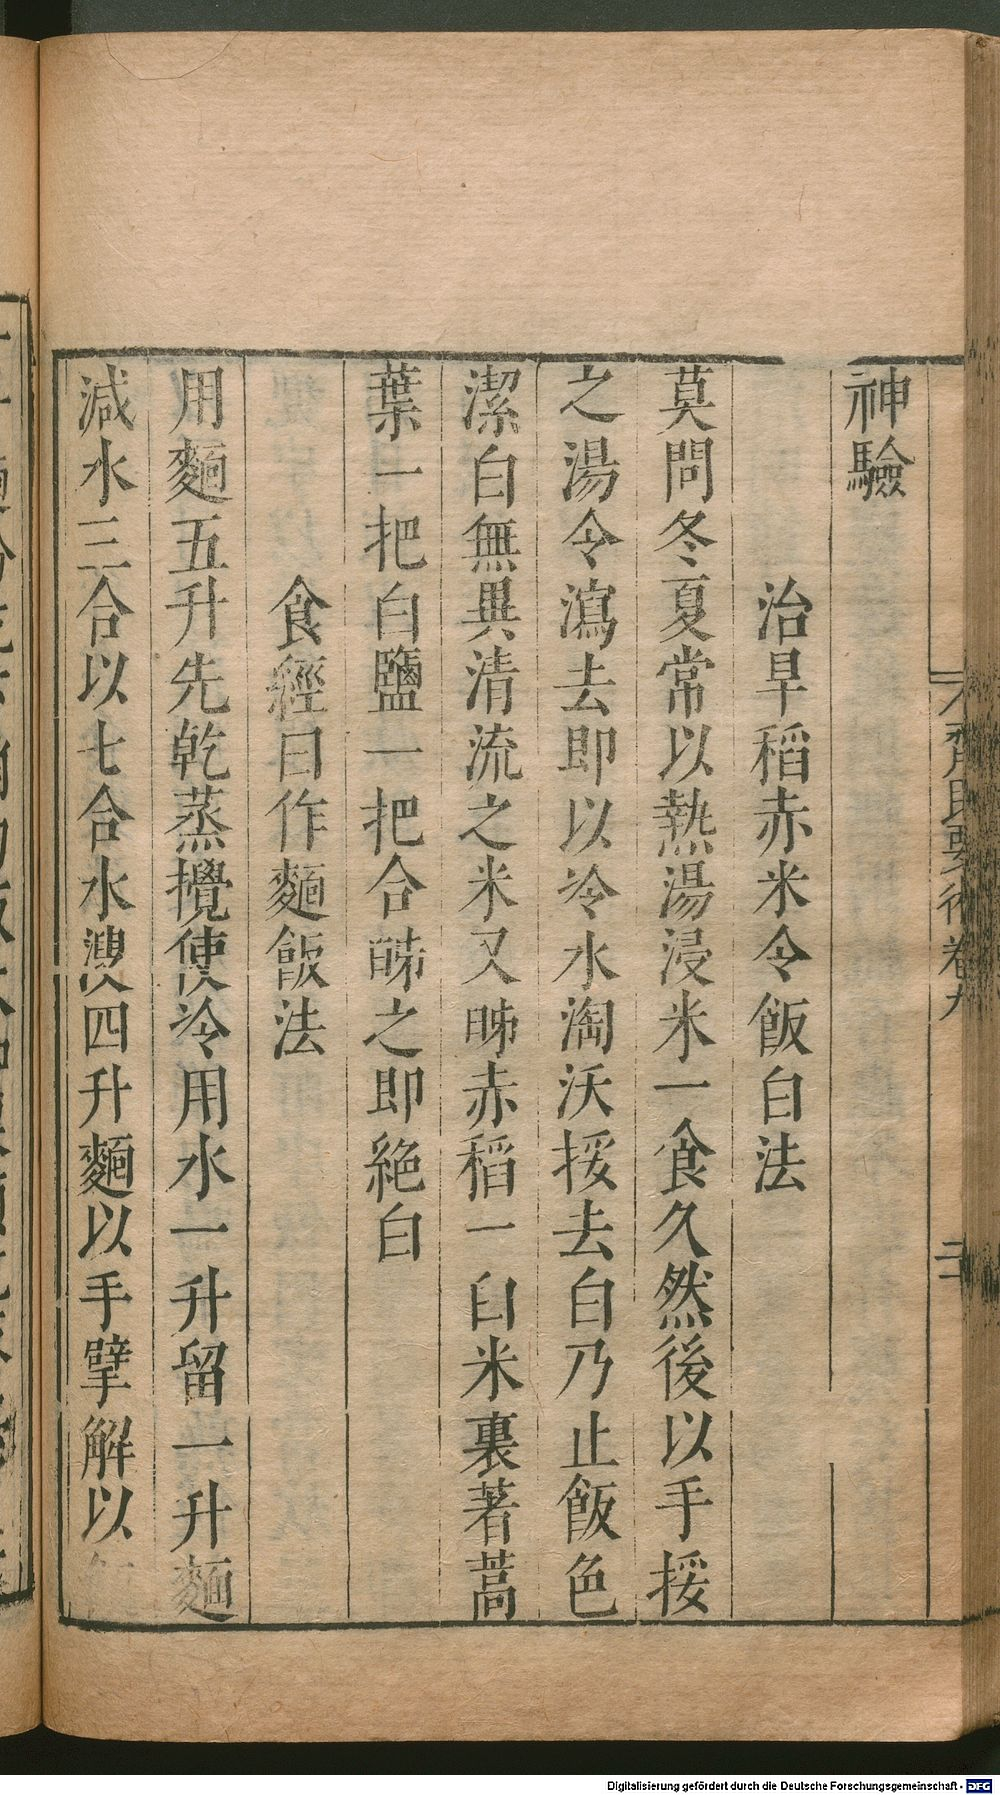 齊民要術卷九
二
神驗
治旱稻赤米令飯白法
莫問冬夏常以熱湯浸米一食久然後以手挼
之湯令瀉去即以冷水淘沃挼去白乃止飯色
潔白無異清流之米又㫰赤稻一臼米裏著蒿
葉一把白鹽一把合㫰之即絶白
食經曰作麵飯法
用麵五升先乾蒸攪使冷用水一升留一升麵
減水三合以七合水溲四升麵以手擘解以
Digitalisierung gefördert durch die Deutsche Forschungsgemeinschaft - DFG